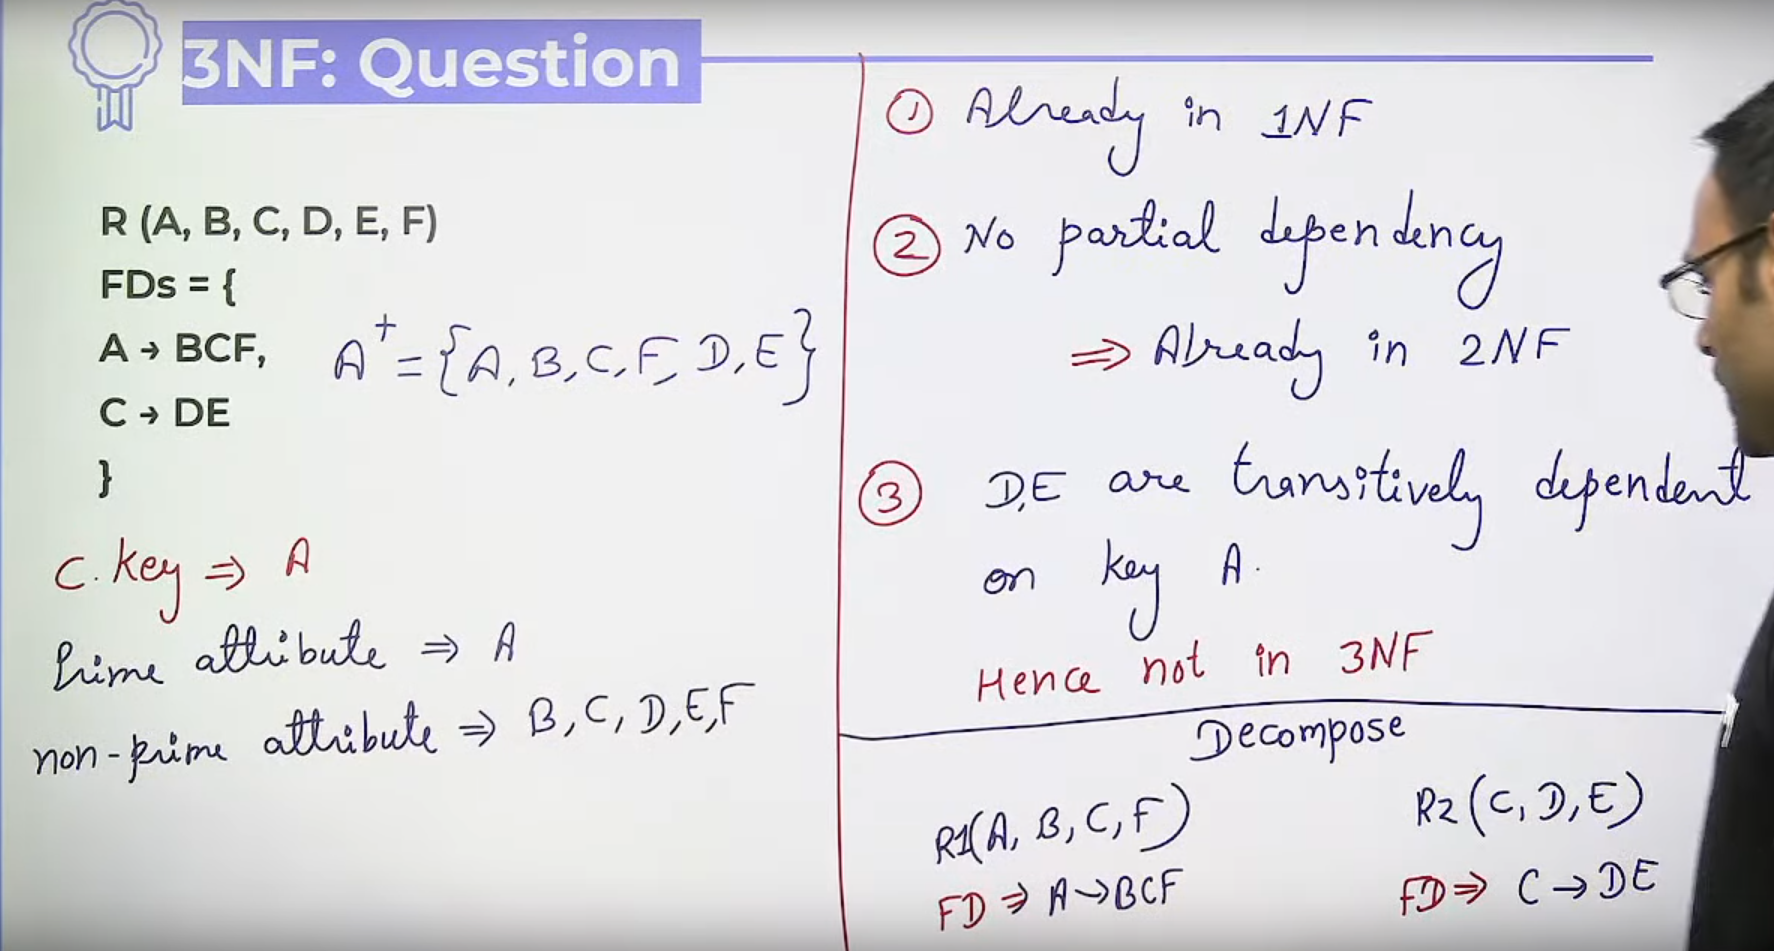 3NF: Question
R (A, B, C, D, E, F)
FDs = {
A → BCF,
C → DE
}
A⁺ = {A, B, C, F, D, E}
C. key ⇒ A
Prime attribute ⇒ A
non-prime attribute ⇒ B, C, D, E, F
① Already in 1NF
② No partial dependency
⇒ Already in 2NF
③ D,E are transitively dependent
on key A.
Hence not in 3NF
Decompose
R1(A, B, C, F)
FD ⇒ A → BCF
R2 (C, D, E)
FD ⇒ C → DE